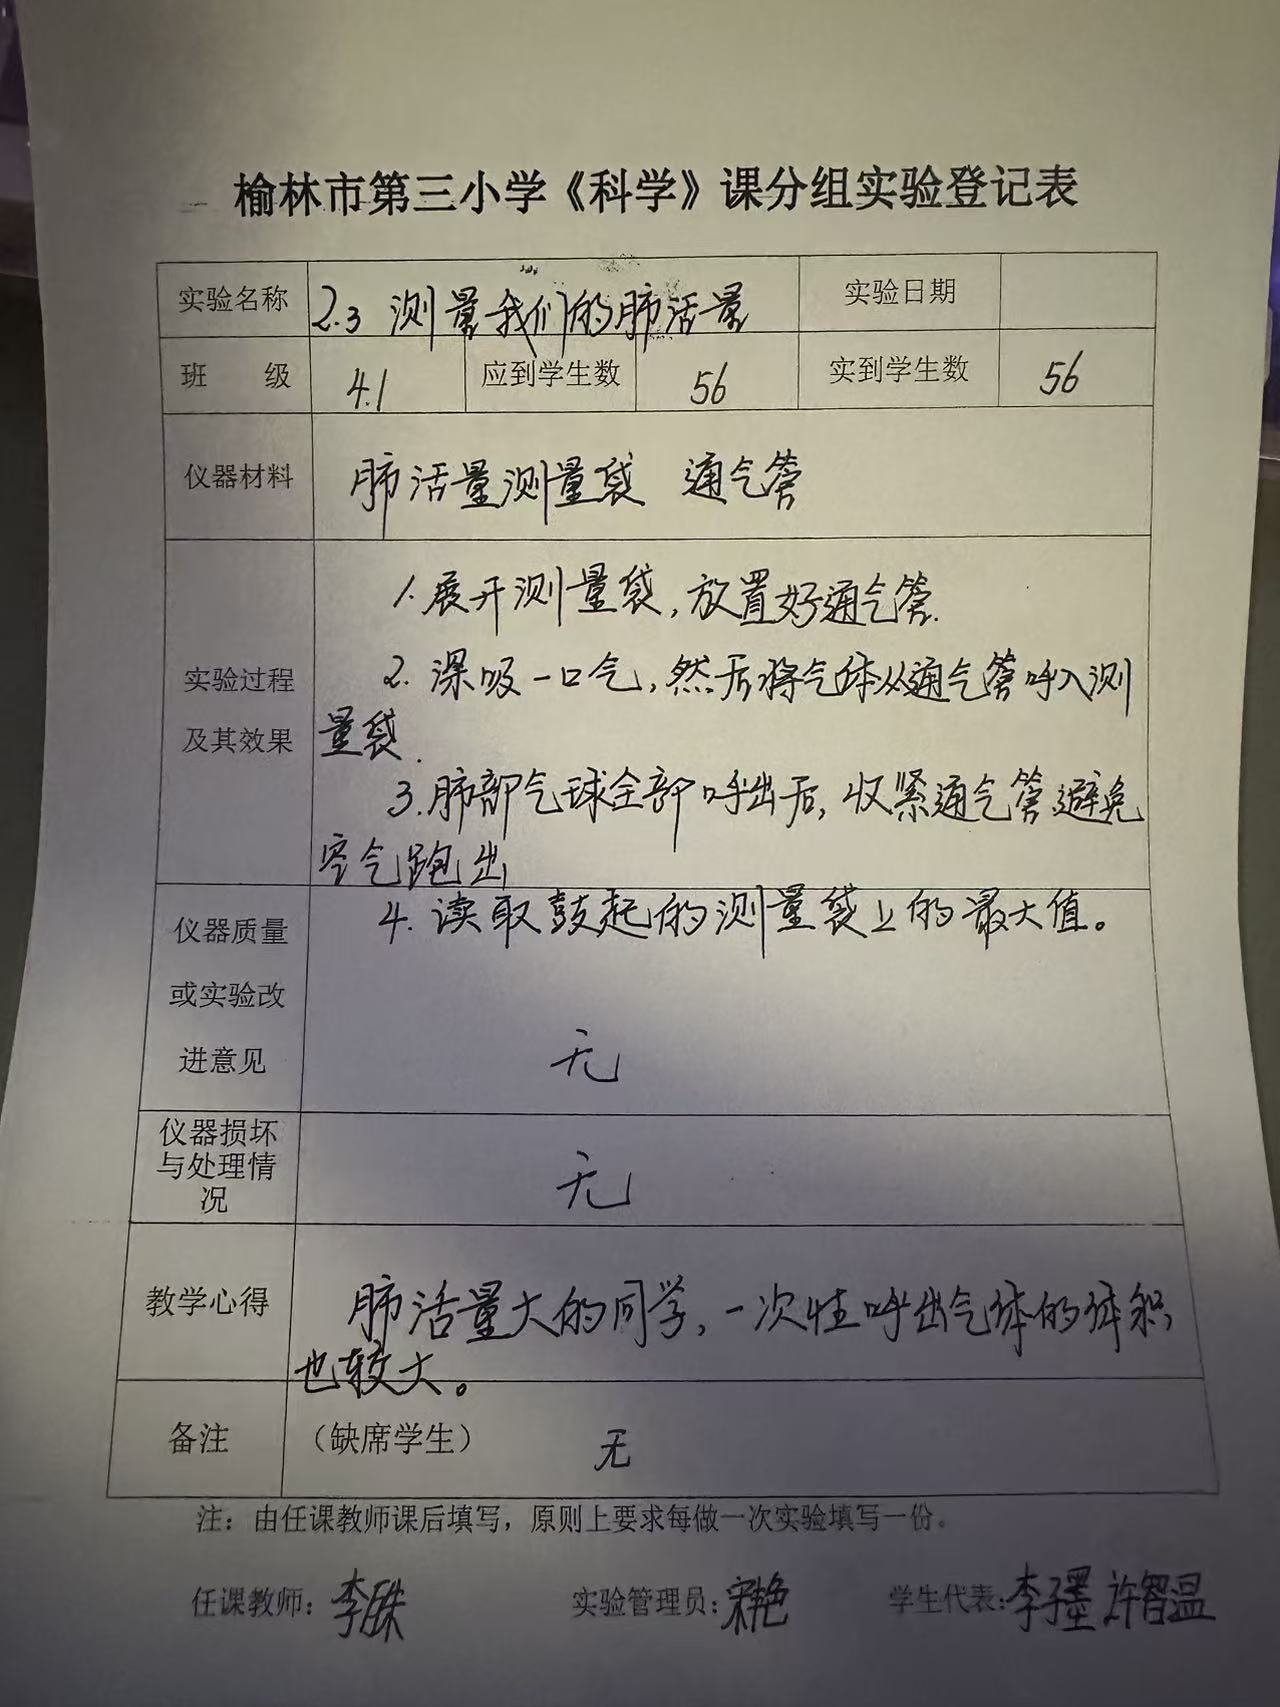 榆林市第三小学《科学》课分组实验登记表
实验名称 2.3 测量我们的肺活量 实验日期
班 级 4.1 应到学生数 56 实到学生数 56
仪器材料 肺活量测量袋 通气管
1.展开测量袋,放置好通气管.
实验过程 2. 深吸一口气,然后将气体从通气管呼入测
及其效果 量袋.
3.肺部气球全部呼出后,收紧通气管避免
空气跑出
仪器质量 4. 读取鼓起的测量袋上的最大值。
或实验改
进意见 无
仪器损坏
与处理情 无
况
教学心得 肺活量大的同学,一次性呼出气体的体积
也较大。
备注 (缺席学生) 无
注:由任课教师课后填写,原则上要求每做一次实验填写一份。
任课教师: 实验管理员:宋艳 学生代表:李子墨 许智温